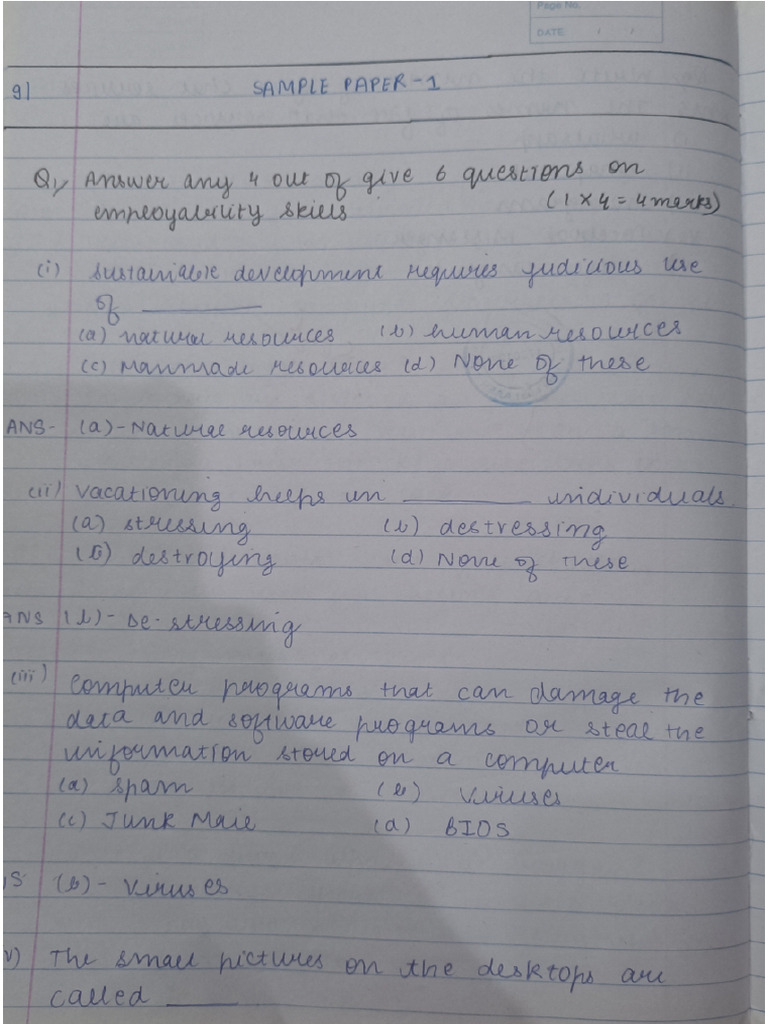 Page No.
DATE / /
9] SAMPLE PAPER-1
Q1, Answer any 4 out of give 6 questions on
emploqability skills (1 x 4 = 4 marks)
(i) Sustainable development requires judicious use
of ________
(a) natural resources (b) human resources
(c) Manmade resources (d) None of these
ANS- (a)-Natural resources
(ii) Vacationing helps in ________ individuals
(a) stressing (b) destressing
(c) destroying (d) None of these
ANS (b)- De-stressing
(iii) Computer programs that can damage the
data and software programs or steal the
information stored on a computer
(a) Spam (b) Viruses
(c) Junk Mail (d) BIOS
S (b)- Viruses
v) The small pictures on the desktops are
called ______